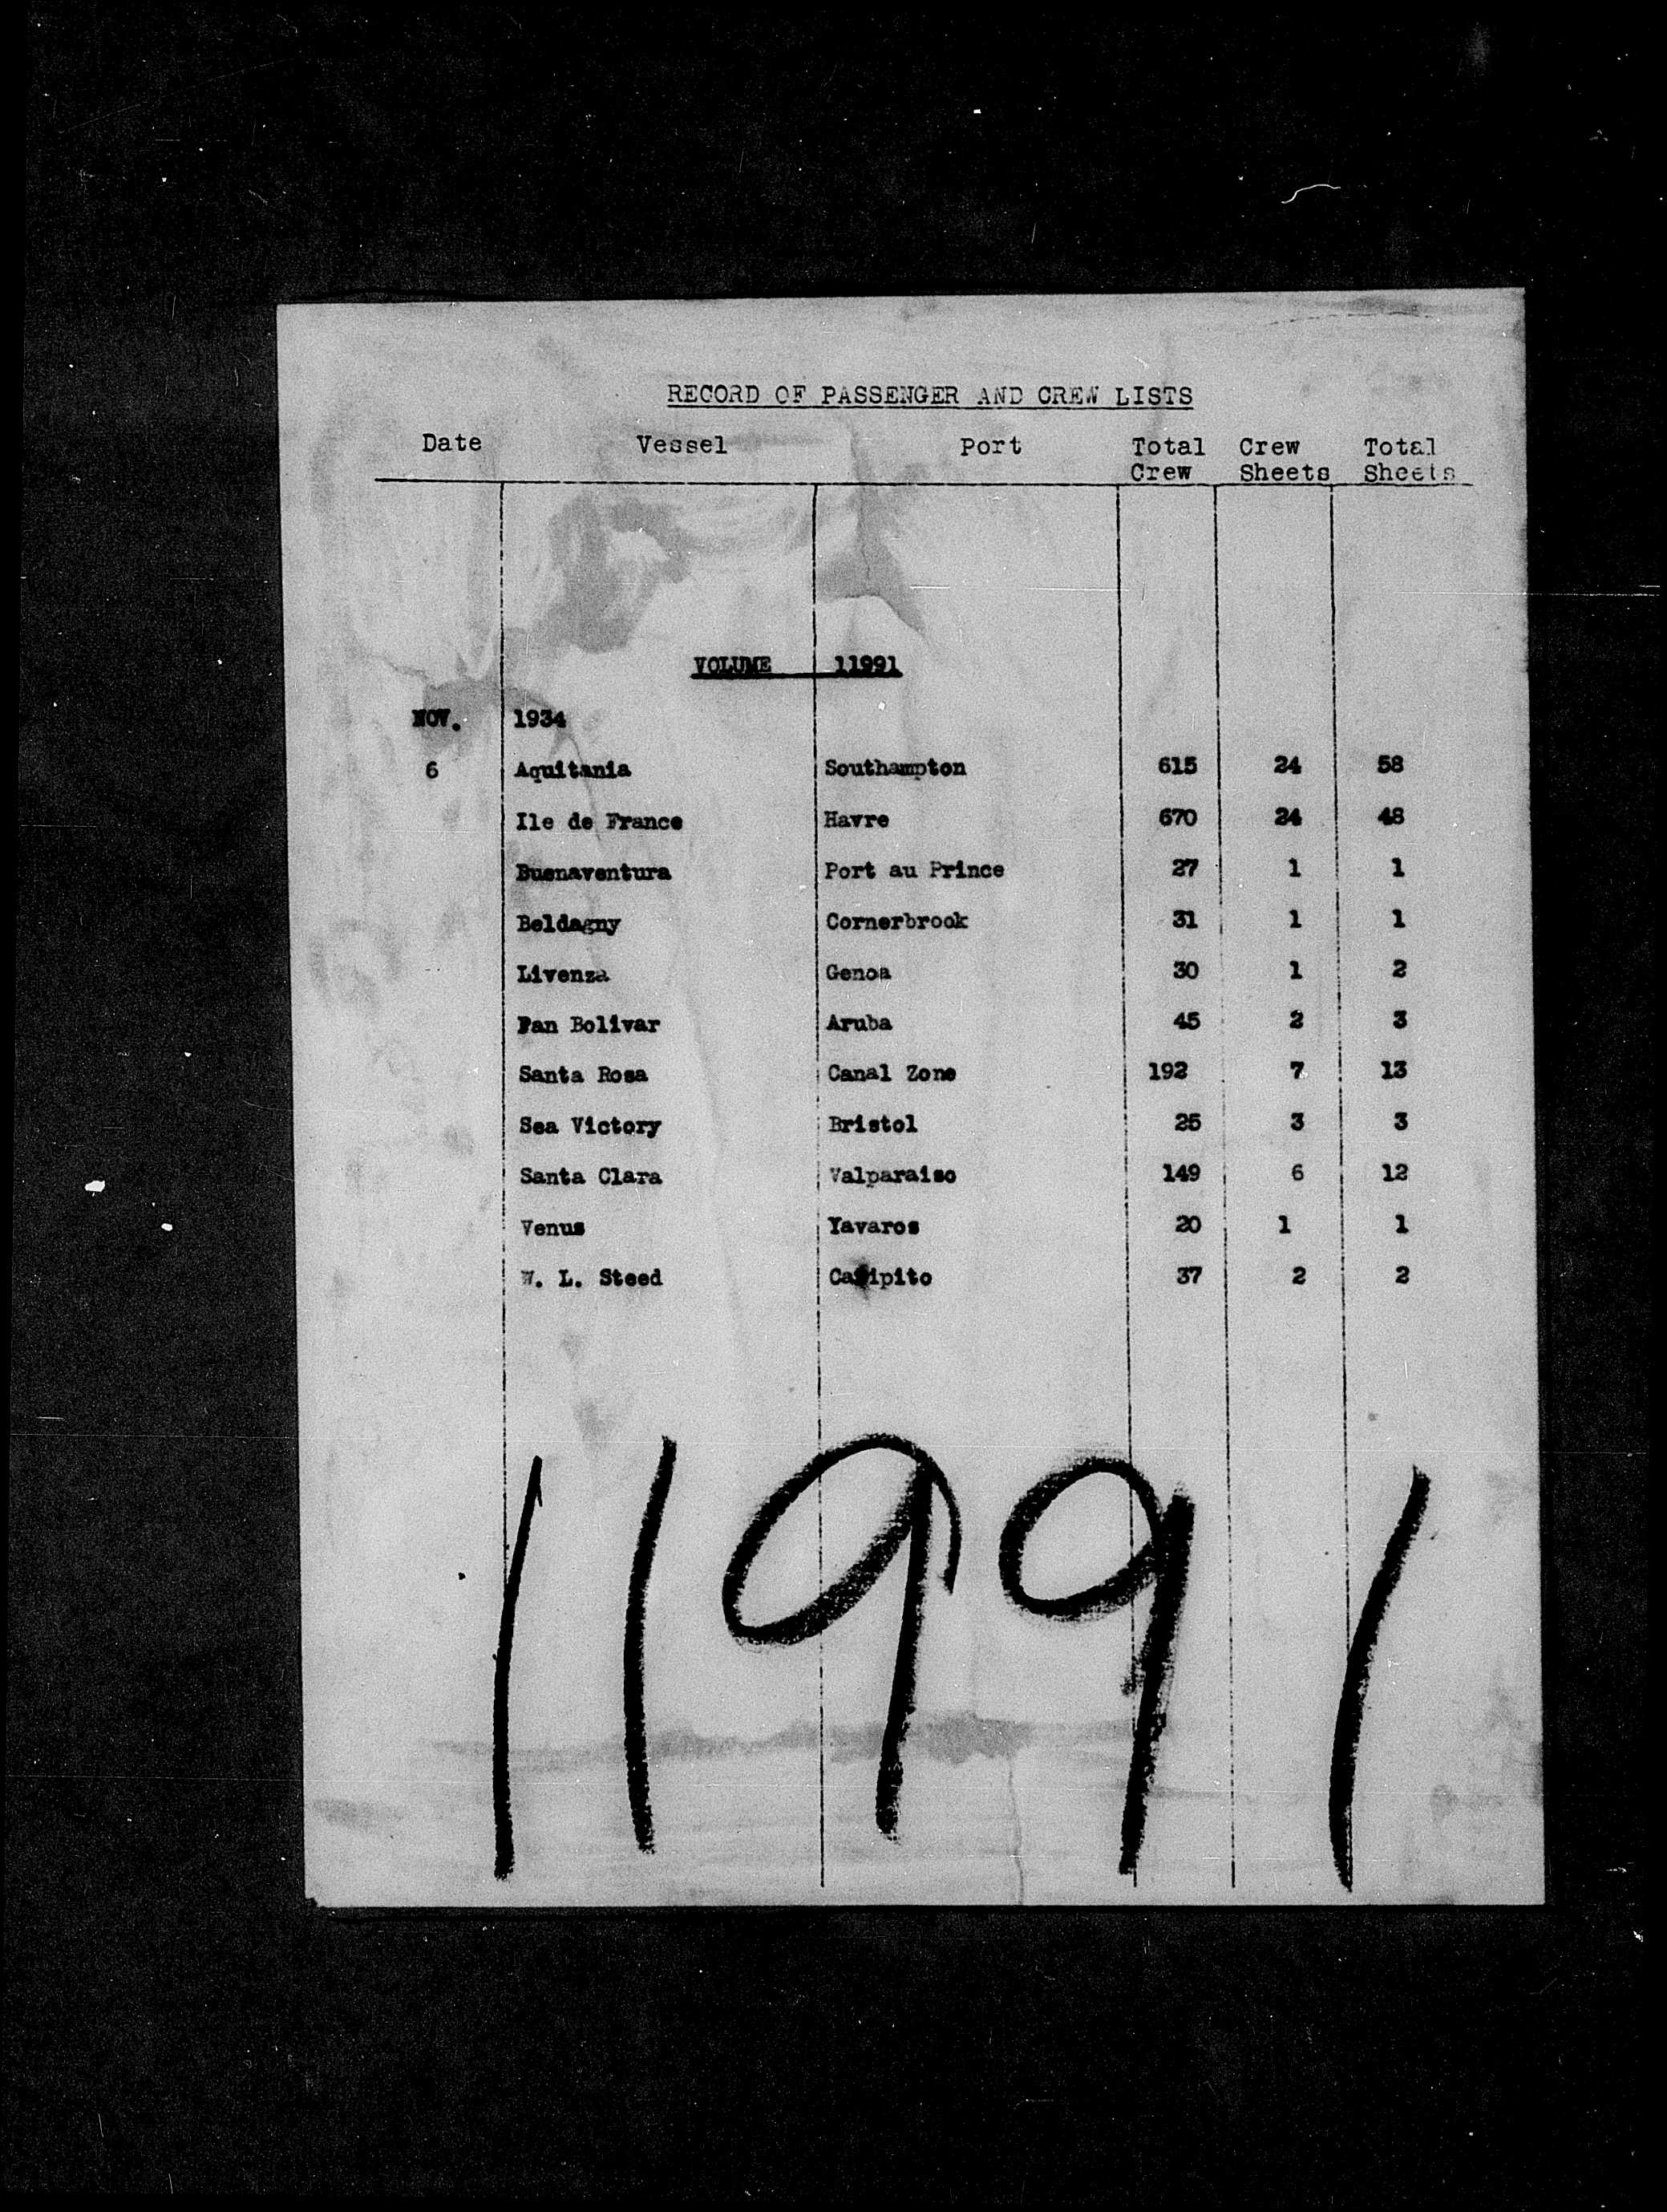 RECORD OF PASSENGER AND CREW LISTS
Date Vessel Port Total Crew Crew Sheets Total Sheets
VOLUME 11991
NOV. 1934
6 Aquitania Southampton 615 24 58
Ile de France Havre 670 24 48
Buenaventura Port au Prince 27 1 1
Beldagny Cornerbrook 31 1 1
Livenza Genoa 30 1 2
Pan Bolivar Aruba 45 2 3
Santa Rosa Canal Zone 192 7 13
Sea Victory Bristol 25 3 3
Santa Clara Valparaiso 149 6 12
Venus Yavaros 20 1 1
W. L. Steed 37 2 2
11991